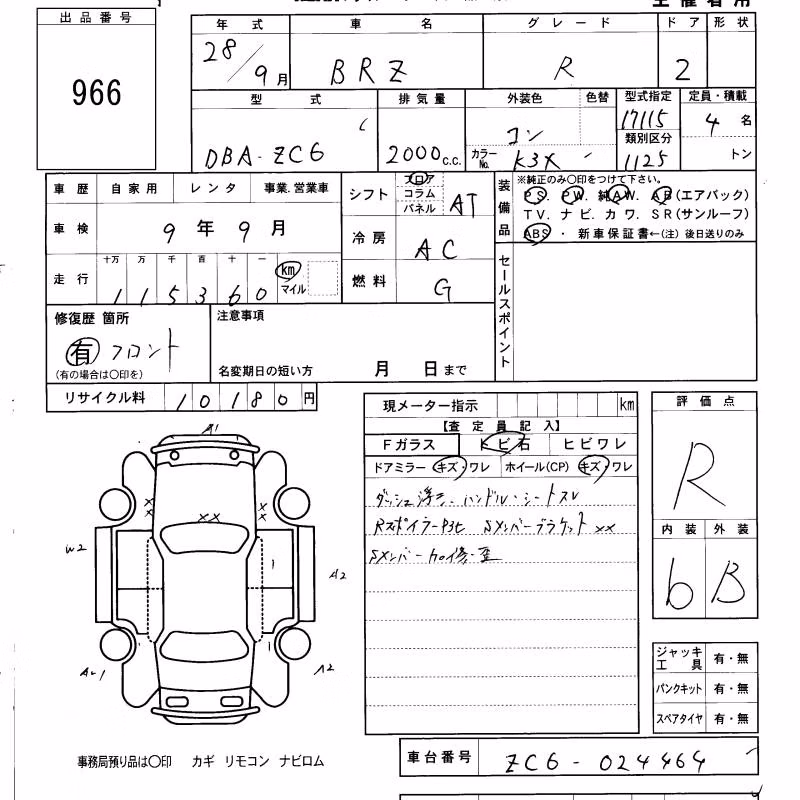 出品番号
966
年式 車名 グレード ドア 形状
28/9月 BRZ R 2
型式 排気量 外装色 色替 型式指定 定員・積載
DBA-ZC6 2000c.c. コン 17115 4名
カラーNo. K3X 類別区分 1125 トン
車歴 自家用 レンタ 事業.営業車
シフト フロア コラム パネル AT
装備品 ※純正のみ○印をつけて下さい。
PS. PW. 純AW. AB(エアバック)
TV. ナビ. カワ. SR(サンルーフ)
ABS・ 新車保証書←(注) 後日送りのみ
車検 9年9月
冷房 AC
走行 十万 万 千 百 十 一 115360 km マイル
燃料 G
セールスポイント
修復歴 箇所
有 フロント
(有の場合は○印を)
注意事項
名変期日の短い方 月 日まで
リサイクル料 10180円
現メーター指示 km
【査定員記入】
Fガラス トビ石 ヒビワレ
ドアミラー キズ・ワレ ホイール(CP) キズ・ワレ
ダッシュ浮き. ハンドル・シートスレ
Rスポイラー P3セ Sメンバーブラケット ××
Sメンバー加修・歪
評価点
R
内装 外装
b B
A1
×
×
××
×
×
W2
1
A2
1
A2
ジャッキ工具 有・無
パンクキット 有・無
スペアタイヤ 有・無
事務局預り品は○印 カギ リモコン ナビロム
車台番号 ZC6-024464